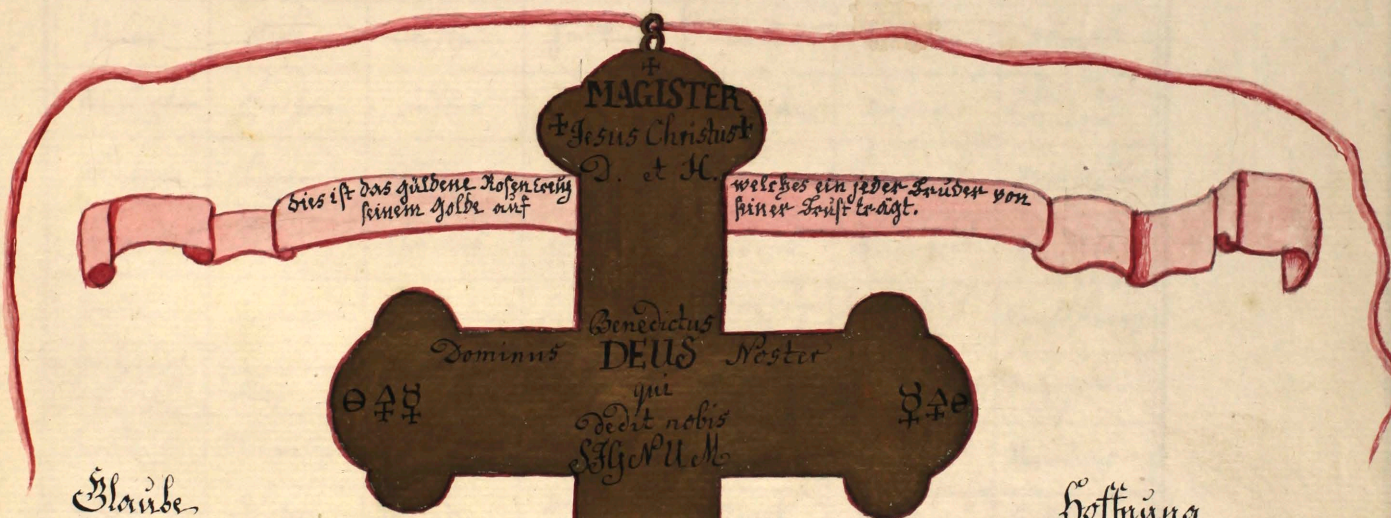 ✠
MAGISTER
✠ Jesus Christus ✠
D. et H.
dies ist das güldene Rosencreuz
seinem Golde auf
welches ein jeder Bruder von
seiner Brust trägt.
Benedictus
Dominus DEUS Noster
qui
🜔 🜍 ☿ ☿ 🜍 🜔
dedit nobis
SIGNUM
Glaube
Hoffnung